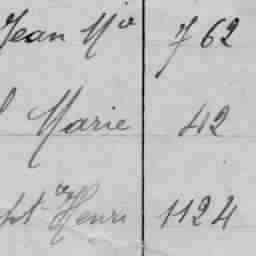 Jean Mie 762
Marie 42
pt Henri 1124